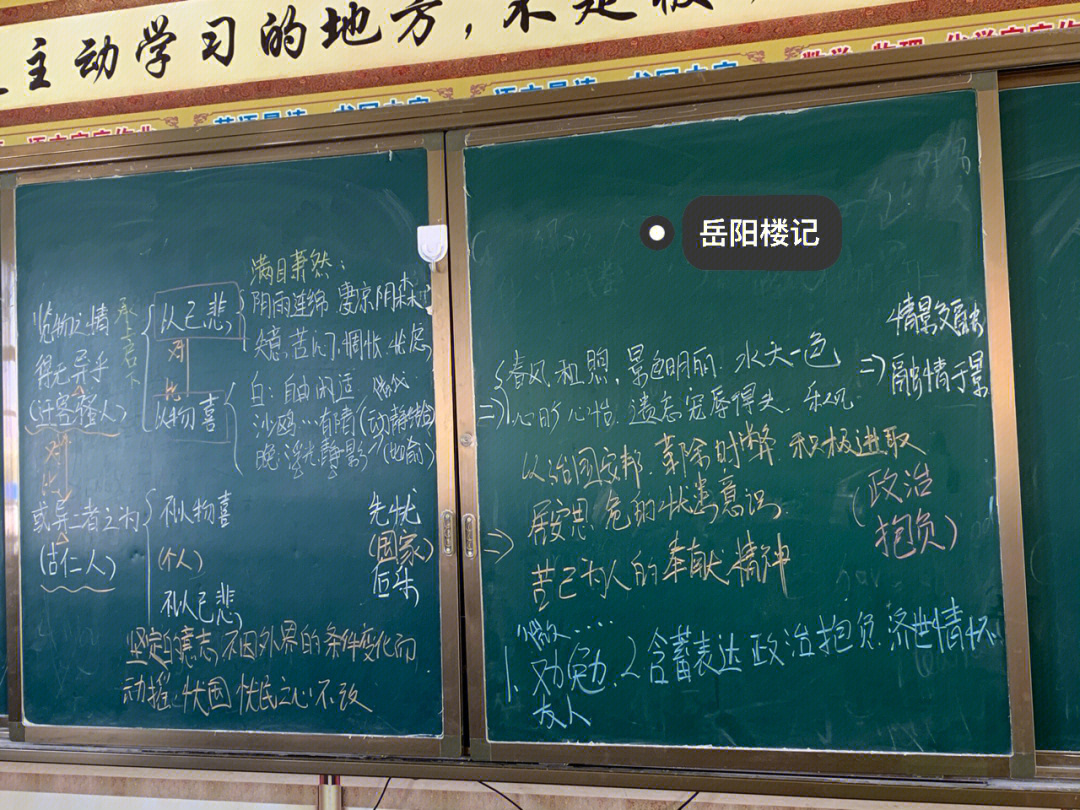 主动学习的地方,不是被
岳阳楼记
览物之情
得无异乎
(迁客骚人)
承上启下
对比
或异二者之为
(古仁人)
以己悲
对比
以物喜
满目萧然:
阴雨连绵 凄凉阴森
失意、苦闷、惆怅、忧虑
白:自由闲适
沙鸥…有情(动静结合
晚:浮光 静影(比喻)
不以物喜
(个人)
不以己悲
先忧
(国家)
后乐
坚定的意志,不因外界的条件变化而
动摇,忧国忧民之心不改
春风和煦,景色明丽 水天一色
心旷心怡 遗忘宠辱得失
=>情景交融
融情于景
以治国安邦、革除时弊 积极进取
居安思危的忧患意识
=>苦己为人的奉献精神
(政治
抱负)
微……
1、劝勉
友人
2、含蓄表达政治抱负、济世情怀